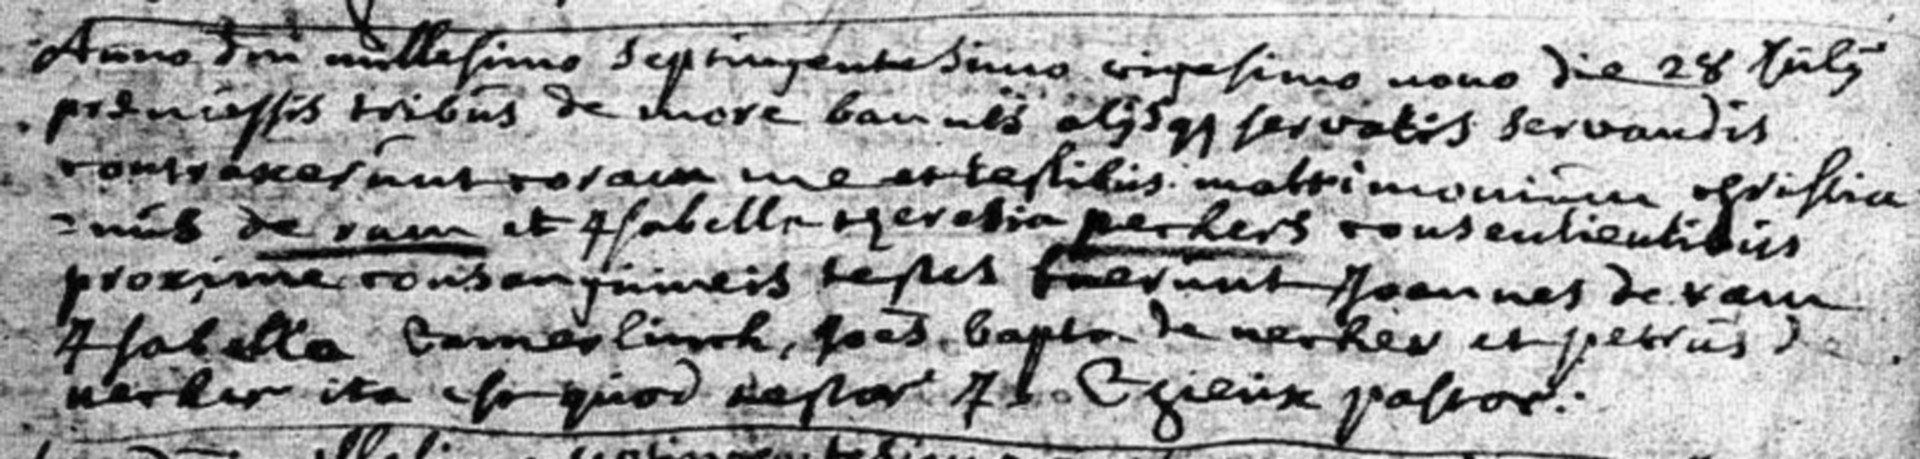 Anno dni millesimo septingentesimo vigesimo nono die 28 Julÿ
præmissis tribus de more bannis alÿsq servatis servandis
contraxerunt coram me et testibus matrimonium christia
=nus de ram et Isabella theresia peckers consentientibus
proxime consanguineis testes fuerunt Joannes de ram
Isabella Camerlinck, Joes bapta de necker et petrus d
necker ita est quod testor J
pastor.